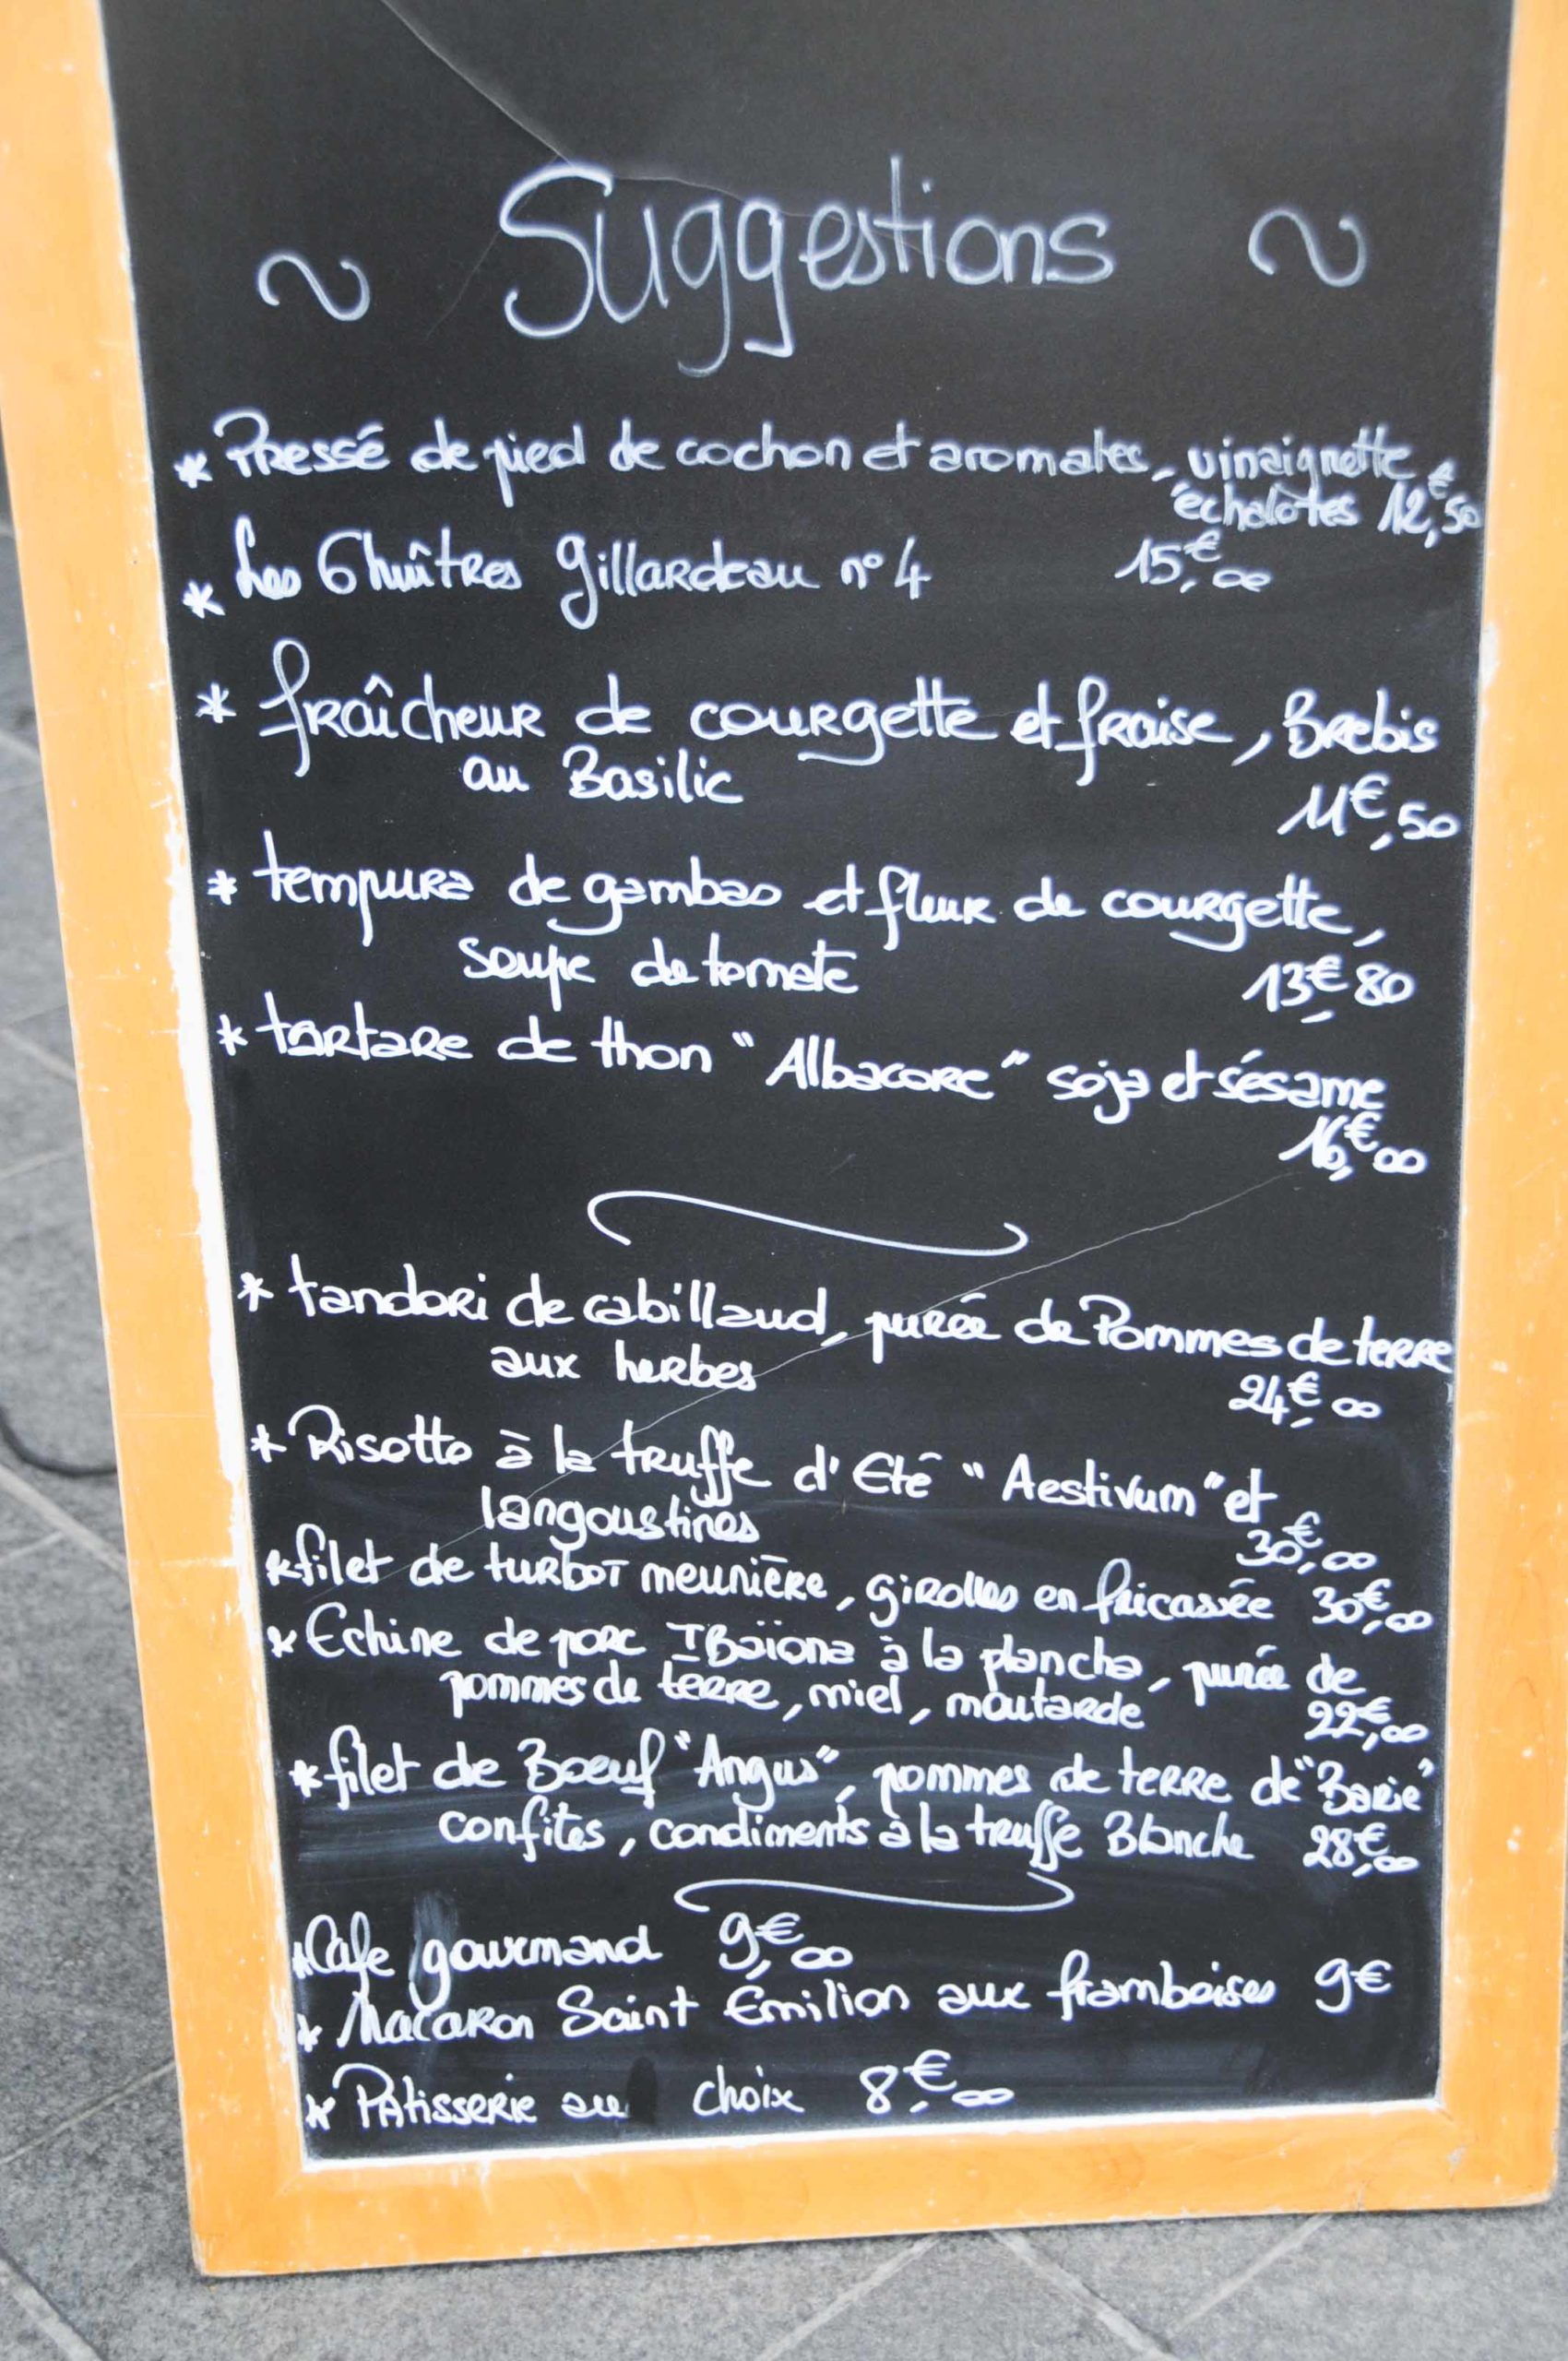 ~ Suggestions ~
* Pressé de pied de cochon et aromates, vinaigrette
échalotes 12,€50
* Les 6 huîtres Gillardeau n° 4 15,€00
* fraîcheur de courgette et fraise, Brebis
au Basilic
11€,50
* tempura de gambas et fleur de courgette,
soupe de tomate 13,€80
* tartare de thon "Albacore" soja et sésame
16,€00
* tandori de cabillaud, purée de Pommes de terre
aux herbes 24,€00
* Risotto à la truffe d'Eté "Aestivum" et
langoustines 30€,00
* filet de turbot meunière, girolles en fricassée 30€,00
* Echine de porc IBaïona à la plancha, purée de
pommes de terre, miel, moutarde 22€,00
* filet de Boeuf "Angus", pommes de terre de "Barie"
confites, condiments à la truffe Blanche 28€,00
* Cafe gourmand 9€,00
* Macaron Saint Émilion aux framboises 9€
* Pâtisserie au choix 8,€00